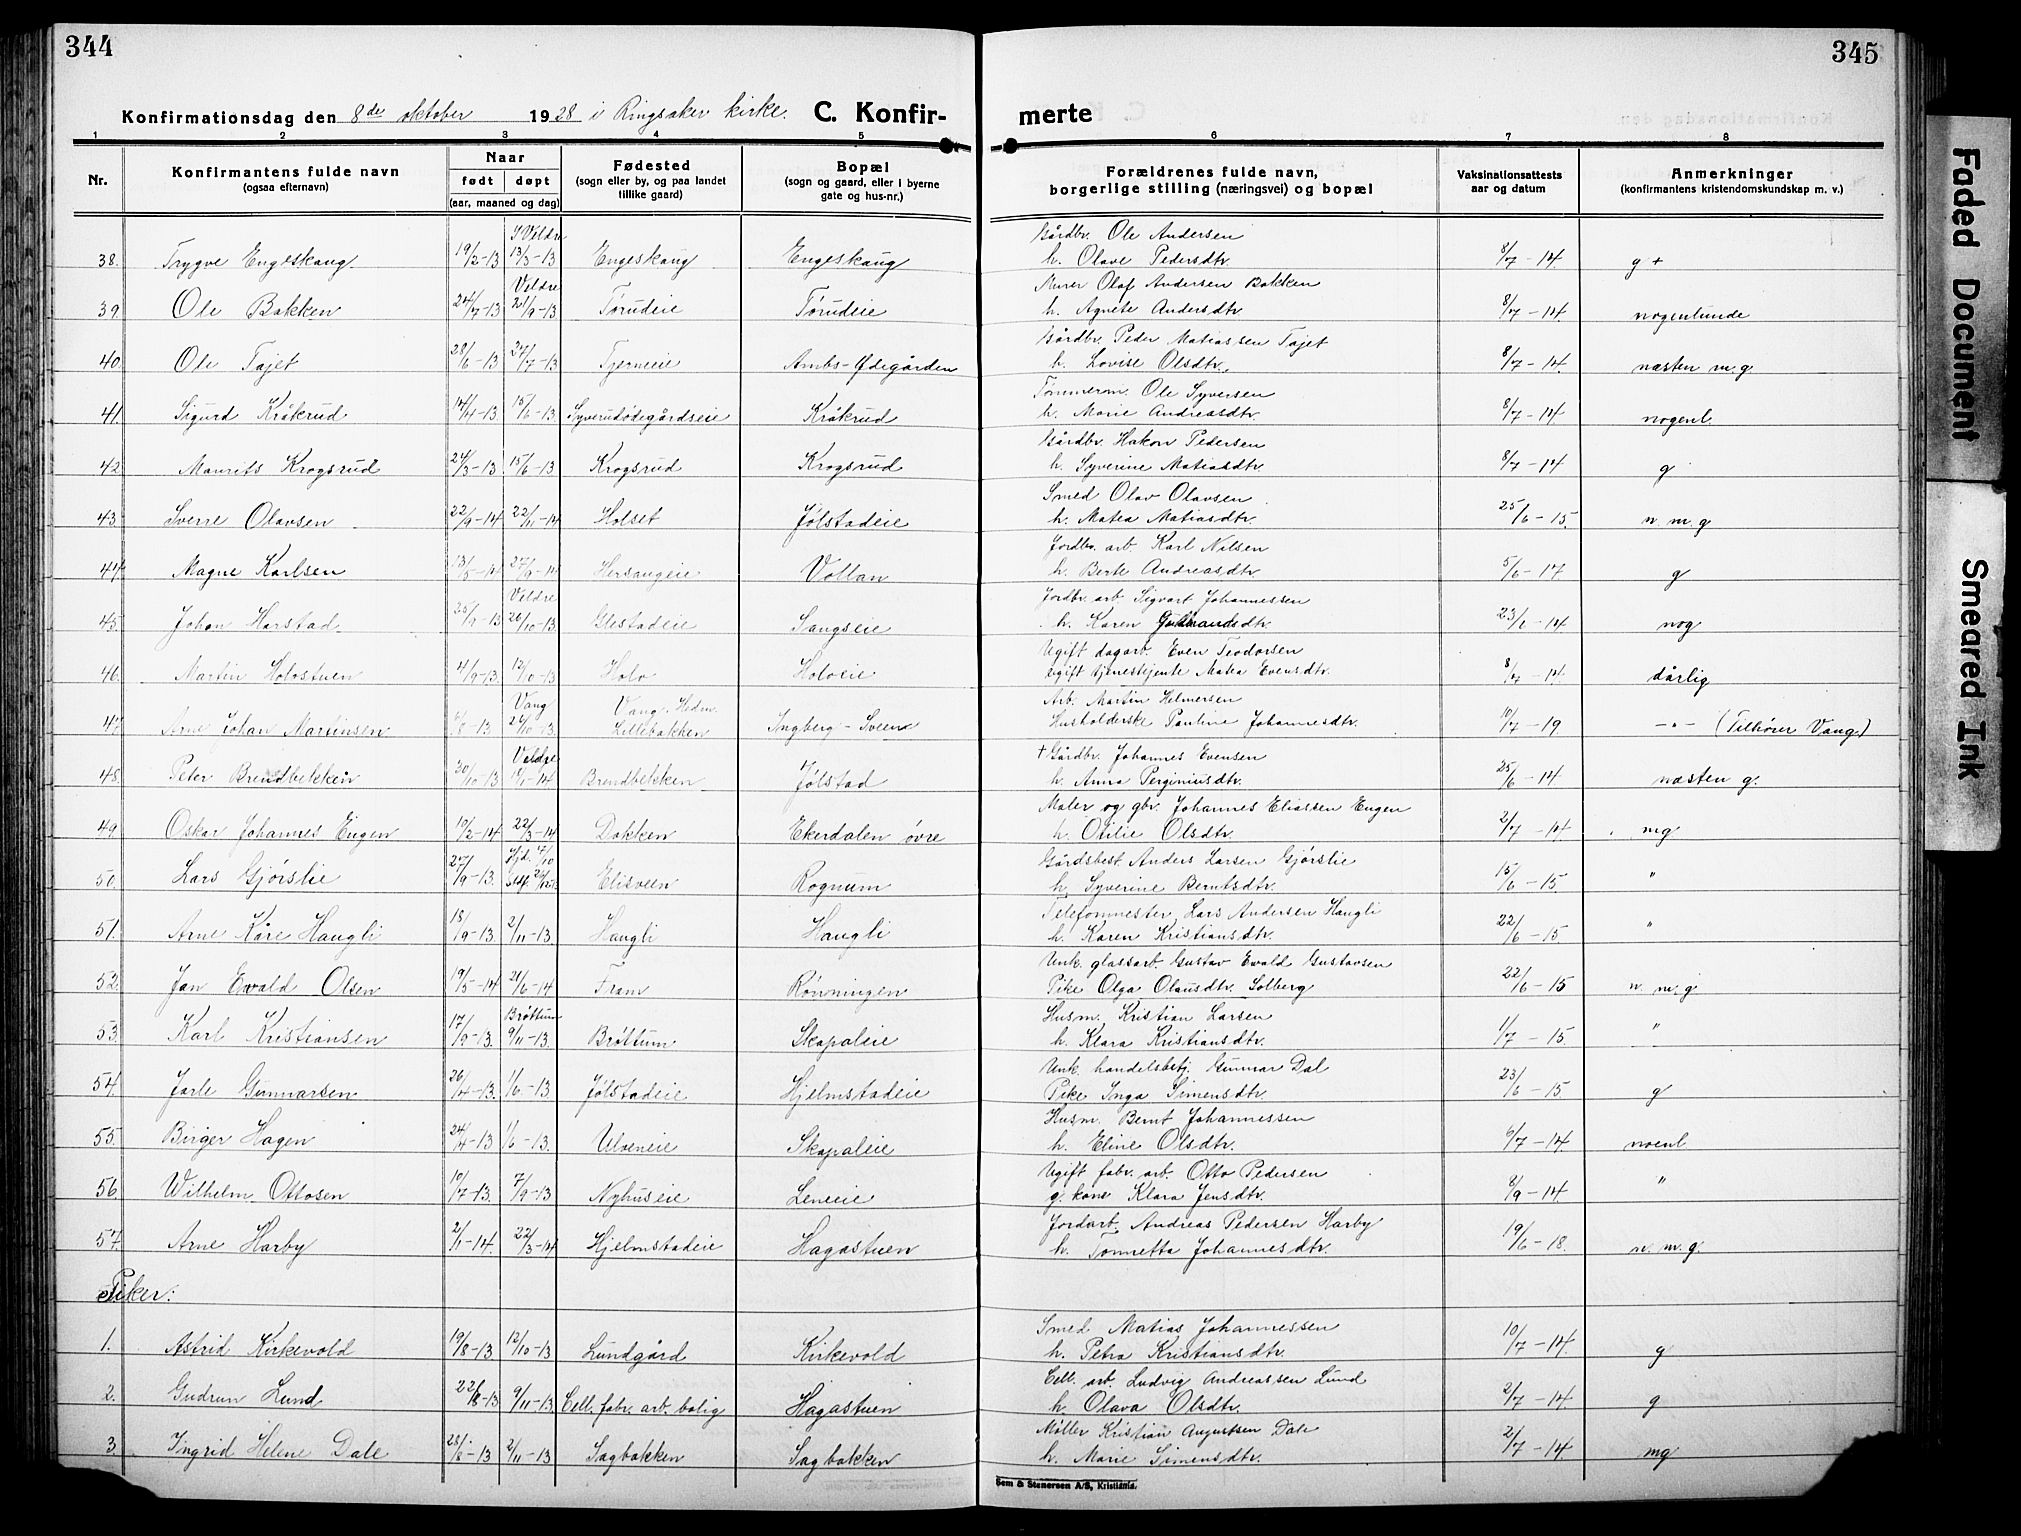 344
345
Konfirmationsdag den 8de oktober 1928 i Ringsaker kirke. C. Konfir-
merte
1 2 3 4 5
6 7 8
Nr. Konfirmantens fulde navn (ogsaa efternavn) Naar født døpt (aar, maaned og dag) Fødested (sogn eller by, og paa landet tillike gaard) Bopæl (sogn og gaard, eller i byerne gate og hus-nr.)
Forældrenes fulde navn, borgerlige stilling (næringsvei) og bopæl Vaksinationsattests aar og datum Anmerkninger (konfirmantens kristendomskundskap m. v.)
38. Trygve Engeskaug 19/2-13 I Veldre 13/3-13 Engeskaug Engeskaug Gårdbr. Ole Andersen h. Olave Pedersdtr. 8/7-14 g +
39. Ole Bakken 24/7-13 Veldre 21/9-13 Tørudeie Tørudeie Murer Olaf Andersen Bakken h. Agnete Andersdtr. 8/7-14 nogenlunde
40. Ole Tajet 28/6-13 27/7-13 Tjerneie Ambs-Ødegården Gårdbr. Peder Matiassen Tajet h. Lovise Olsdtr. 8/7-14 næsten m.g.
41. Sigurd Kråkrud 14/4-13 15/6-13 Syverudødegårdseie Kråkrud Tømmerm. Ole Syversen h. Marie Andreasdtr. 8/7-14 nogenl.
42. Maurits Krogsrud 24/3-13 15/6-13 Krogsrud Krogsrud Gårdbr. Hakon Pedersen h. Syverine Matiasdtr. 8/7-14 g
43. Sverre Olavsen 22/9-14 22/11-14 Holset Jølstadeie Smed Olav Olavsen h. Matea Matiasdtr. 25/6-15 n. m. g
44. Magne Karlsen 13/8-14 27/9-14 Hersaugeie Vollan Jordbr. arb. Karl Nilsen h. Berte Andreasdtr. 5/6-17 g
45. Johan Harstad 25/9-13 Veldre 26/10-13 Glestadeie Sangseie Jordbr. arb. Sigvart Johannessen h. Karen Gulbrandsdtr. 23/6-14 nog
46. Martin Holostuen 4/9-13 12/10-13 Holo Holoeie Ugift dagarb. Even Teodorsen ugift tjenestejente Matea Evensdtr. 8/7-14 dårlig
47. Arne Johan Martinsen 6/8-13 Vang 26/10-13 Vang. Hedm. Lillebakken Ingberg-Sveen Arb. Martin Helmersen Husholderske Pauline Johannesdtr. 10/7-19 -"- (Tilhører Vang)
48. Peter Brendbekken 30/10-13 Veldre 14 Brendbekken Jølstad + Gårdbr. Johannes Evensen h. Anna Perginiusdtr. 25/6-14 næsten g.
49. Oskar Johannes Engen 19/2-14 22/3-14 Dakken Ekerdalen øvre Maler og gbr. Johannes Eliassen Engen h. Otilie Olsdtr. 2/7-14 mg
50. Lars Gjørslie 27/9-13 Hjd. 7/10 Elisveen Rognum Gårdsbest Anders Larsen Gjørslie h. Syverine Berntsdtr. 15/6-15 "
51. Arne Kåre Haugli 18/9-13 2/11-13 Haugli Haugli Telefonmester Lars Andersen Haugli h. Karen Kristiansdtr. 22/6-15 "
52. Jan Ewald Olsen 19/5-14 21/6-14 Fram Rønningen Unk. glassarb. Gustav Ewald Gustavsen Pike Olga Olausdtr. Solberg 22/6-15 n. m. g
53. Karl Kristiansen 17/9-13 Brøttum 9/11-13 Brøttum Skapaleie Husm. Kristian Larsen h. Klara Kristiansdtr. 1/7-15 "
54. Jarle Gunnarsen 26/4-13 1/6-13 Jølstadeie Hjelmstadeie Unk. handelsbetj. Gunnar Dal Pike Inga Simensdtr. 23/6-15 g
55. Birger Hagen 24/4-13 1/6-13 Ulveneie Skapaleie Husm. Bernt Johannessen h. Eline Olsdtr. 6/7-14 noenl
56. Wilhelm Ottosen 10/7-13 7/9-13 Nyhuseie Leneie Ugift fabr. arb. Otto Pedersen g. kone Klara Jensdtr. 8/9-14 "
57. Arne Harby 2/1-14 22/3-14 Hjelmstadeie Hagastuen Jordarb. Andreas Pedersen Harby h. Tonnetta Johannesdtr. 19/6-18 n. m. g.
Piker:
1. Astrid Kirkevold 19/8-13 12/10-13 Lundgård Kirkevold Smed Matias Johannessen h. Petra Kristiansdtr. 10/7-14 g
2. Gudrun Lund 22/8-13 9/11-13 Cell. fabr. arb. bolig Hagastuen Cell. arb. Ludvig Andreassen Lund h. Olava Olsdtr. 2/7-14 g
3. Ingrid Helene Dale 28/8-13 2/11-13 Sagbakken Sagbakken Møller Kristian Augustsen Dale h. Marie Simensdtr. 2/7-14 mg
Sem & Stenersen A/S, Kristiania.
Faded Document
Smeared Ink